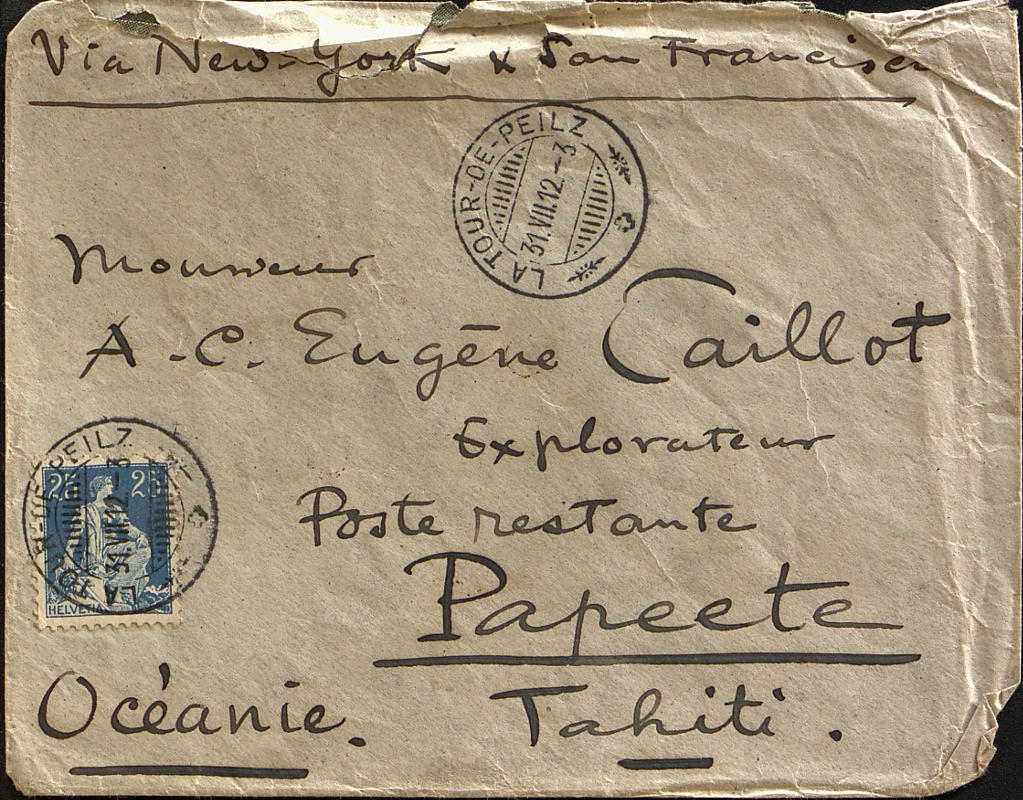 Via New-York & San Francisco
LA TOUR-DE-PEILZ
31.VII.12-3
Monsieur
A.C. Eugène Caillot
Explorateur
Poste restante
Papeete
LA TOUR-DE-PEILZ
31.VII.12-3
25 25
HELVETIA
Océanie. Tahiti.